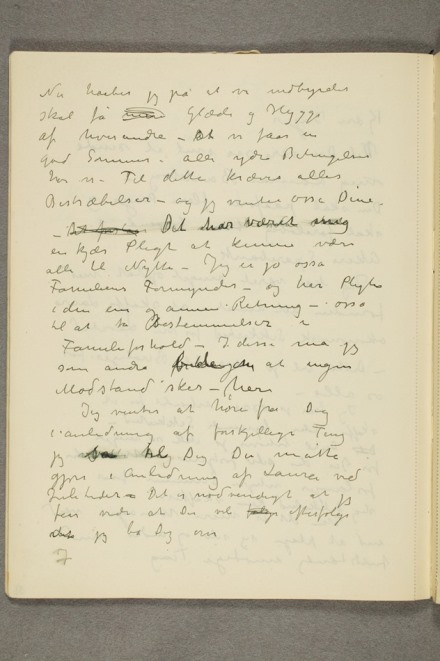 Nu haaber jeg på at vi indbyrdes
skal få Glæde og Hygge
af hverandre – At vi faar en
god Sommer – alle ydre Betingelser
har vi – Til dette kræves alles
Bestræbelser – og jeg venter ossa Dine –
– Det har været mig
en kjær Pligt at kunne være
alle til Nytte – Jeg er jo ossa
Familiens Formynder – og har Pligter
i den ene og annen Retning – ossa
til at ta Bestemmelser i
Familieforhold – I disse må jeg
som andre at ingen
Modstand sker – her
Jeg venter at höre fra Dig
i anledning af forskjellige Ting
jeg Dig Du måtte
gjøre i Anledning af Laura ved
Det er nødvendigt at jeg
faar vide at Du vil efterfølge
jeg ba Dig om